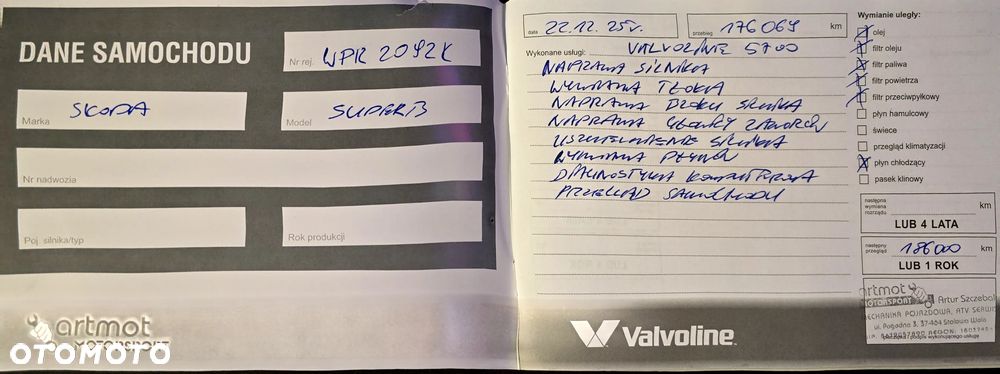 DANE SAMOCHODU
Nr rej. WPR 2092K
SKODA
Marka
SUPERB
Model
Nr nadwozia
Poj. silnika/typ
Rok produkcji
artmot
MOTORSPORT
OTOMOTO
data 22.12.25r. przebieg 176069 km
Wykonane usługi: VALVOLINE 5W30
NAPRAWA SILNIKA
WYMIANA TŁOKA
NAPRAWA BLOKU SILNIKA
NAPRAWA GŁOWICY ZAWORÓW
USZCZELNIENIE SILNIKA
WYMIANA PŁYNÓW
DIAGNOSTYKA KOMPUTEROWA
PRZEGLĄD SAMOCHODU
Wymianie uległy:
olej
filtr oleju
filtr paliwa
filtr powietrza
filtr przeciwpyłkowy
płyn hamulcowy
świece
przegląd klimatyzacji
płyn chłodzący
pasek klinowy
następna wymiana rozrządu km
LUB 4 LATA
następny przegląd 186000 km
LUB 1 ROK
artmot Artur Szczebal
MOTORSPORT
MECHANIKA POJAZDOWA, ATV SERWIS
ul. Pogodna 3, 37-464 Stalowa Wola
pieczątka i podpis wykonującego usługę
Valvoline